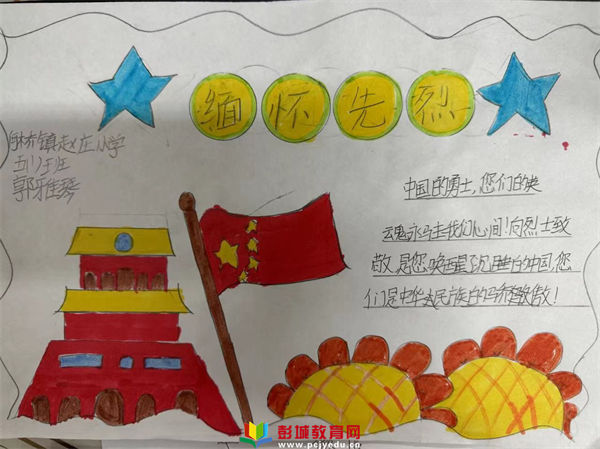 缅怀先烈
镇赵庄小学
五(1)班
郭雅琴
中国的勇士,您们的英
魂永驻我们心间!向烈士致
敬,是您唤醒沉睡的中国,您
们是中华民族的骄傲!
彭城教育网
www.pcjyedu.cn